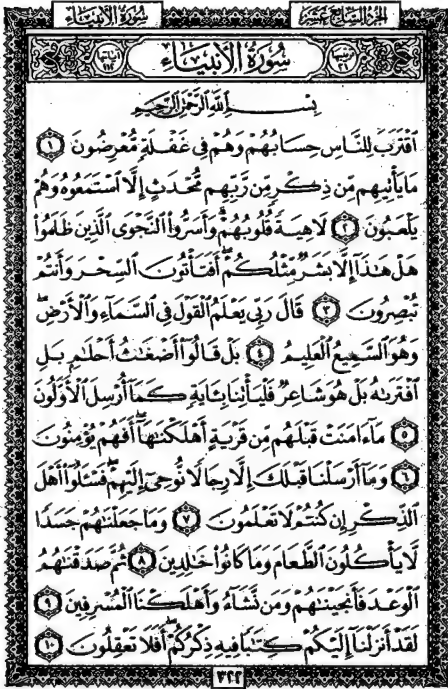 سُورَةُ الأَنبِيَاءِ
الجُزْءُ السَّابِعَ عَشَرَ
سُورَةُ الأَنبِيَاءِ
بِسْمِ اللَّهِ الرَّحْمَٰنِ الرَّحِيمِ
ٱقْتَرَبَ لِلنَّاسِ حِسَابُهُمْ وَهُمْ فِى غَفْلَةٍ مُّعْرِضُونَ ١
مَا يَأْتِيهِم مِّن ذِكْرٍ مِّن رَّبِّهِم مُّحْدَثٍ إِلَّا ٱسْتَمَعُوهُ وَهُمْ
يَلْعَبُونَ ٢ لَاهِيَةً قُلُوبُهُمْ ۗ وَأَسَرُّوا۟ ٱلنَّجْوَى ٱلَّذِينَ ظَلَمُوا۟
هَلْ هَٰذَآ إِلَّا بَشَرٌ مِّثْلُكُمْ ۖ أَفَتَأْتُونَ ٱلسِّحْرَ وَأَنتُمْ
تُبْصِرُونَ ٣ قَالَ رَبِّى يَعْلَمُ ٱلْقَوْلَ فِى ٱلسَّمَآءِ وَٱلْأَرْضِ ۖ
وَهُوَ ٱلسَّمِيعُ ٱلْعَلِيمُ ٤ بَلْ قَالُوٓا۟ أَضْغَٰثُ أَحْلَٰمٍۭ بَلِ
ٱفْتَرَىٰهُ بَلْ هُوَ شَاعِرٌ فَلْيَأْتِنَا بِـَٔايَةٍ كَمَآ أُرْسِلَ ٱلْأَوَّلُونَ
٥ مَآ ءَامَنَتْ قَبْلَهُم مِّن قَرْيَةٍ أَهْلَكْنَٰهَآ ۖ أَفَهُمْ يُؤْمِنُونَ
٦ وَمَآ أَرْسَلْنَا قَبْلَكَ إِلَّا رِجَالًا نُّوحِىٓ إِلَيْهِمْ ۖ فَسْـَٔلُوٓا۟ أَهْلَ
ٱلذِّكْرِ إِن كُنتُمْ لَا تَعْلَمُونَ ٧ وَمَا جَعَلْنَٰهُمْ جَسَدًا
لَّا يَأْكُلُونَ ٱلطَّعَامَ وَمَا كَانُوا۟ خَٰلِدِينَ ٨ ثُمَّ صَدَقْنَٰهُمُ
ٱلْوَعْدَ فَأَنجَيْنَٰهُمْ وَمَن نَّشَآءُ وَأَهْلَكْنَا ٱلْمُسْرِفِينَ ٩
لَقَدْ أَنزَلْنَآ إِلَيْكُمْ كِتَٰبًا فِيهِ ذِكْرُكُمْ ۖ أَفَلَا تَعْقِلُونَ ١٠
٣٢٢